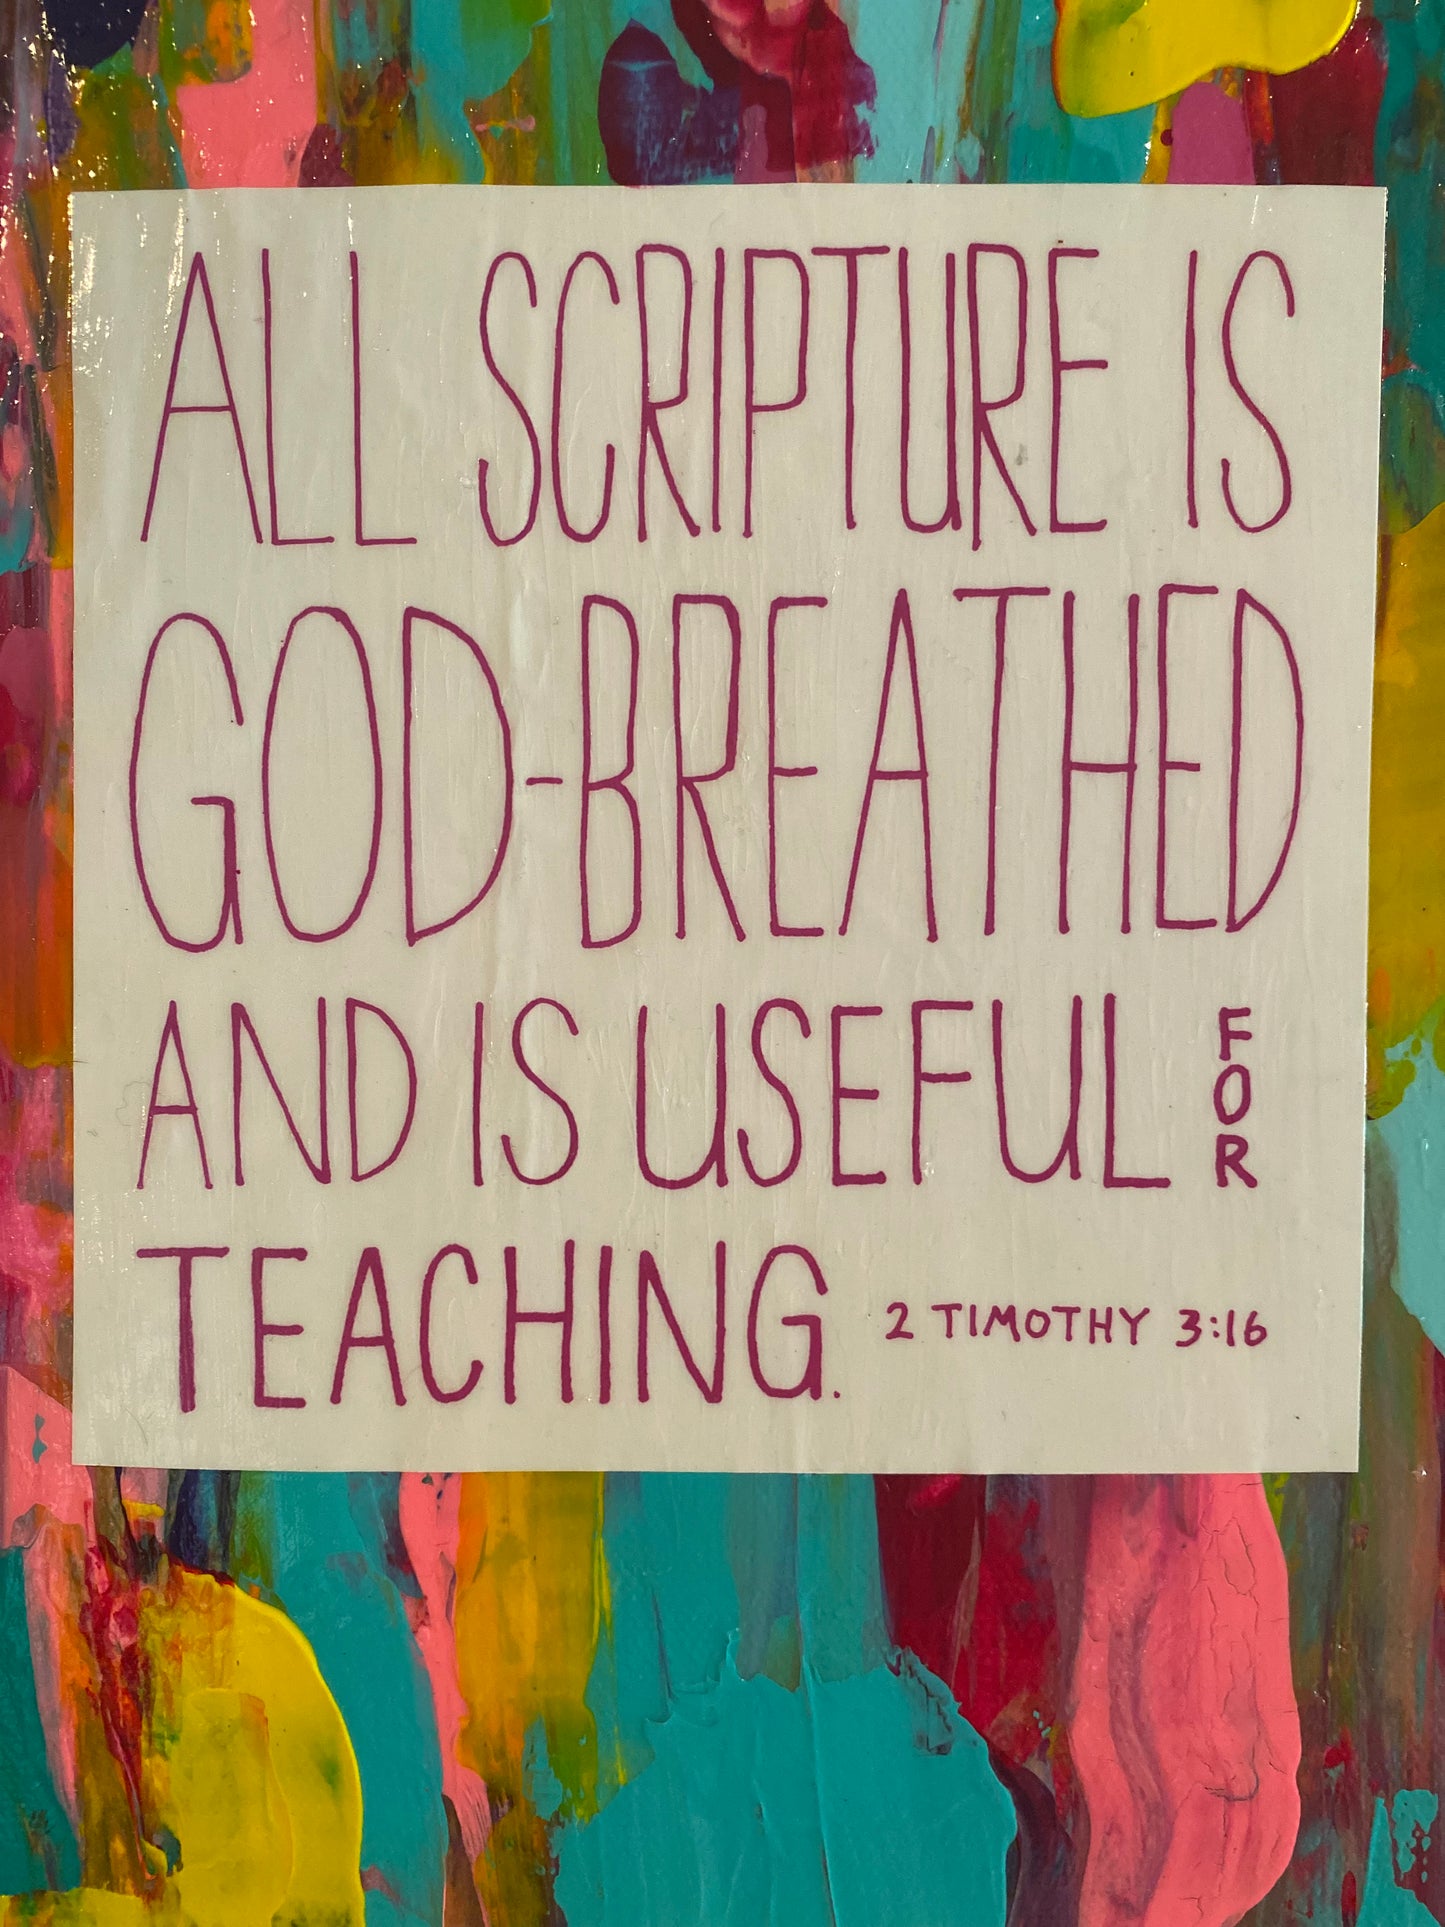 ALL SCRIPTURE IS
GOD-BREATHED
AND IS USEFUL FOR
TEACHING. 2 TIMOTHY 3:16